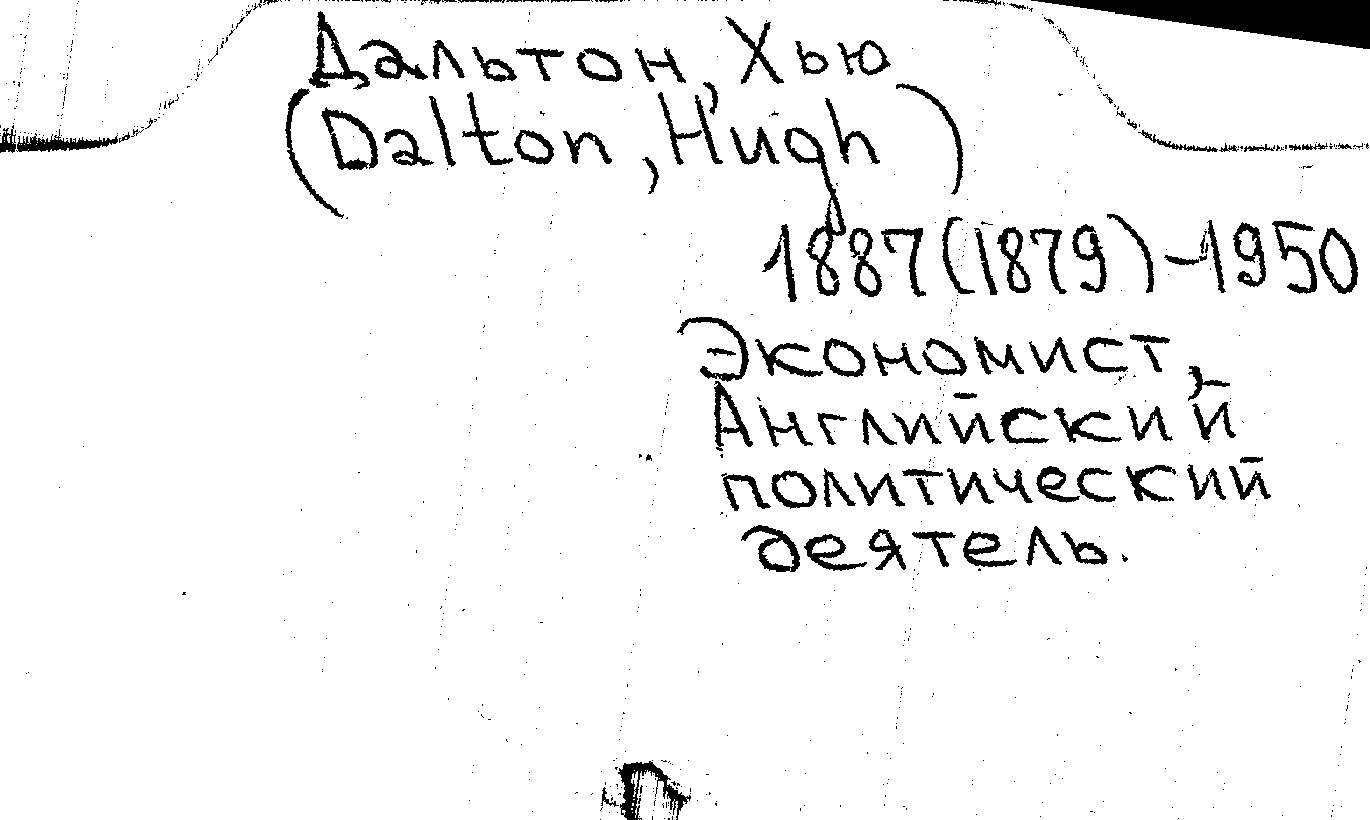 Дальтон, Хью
(Dalton, Hugh)
1887(1879)-1950
Экономист,
Английский
политический
деятель.